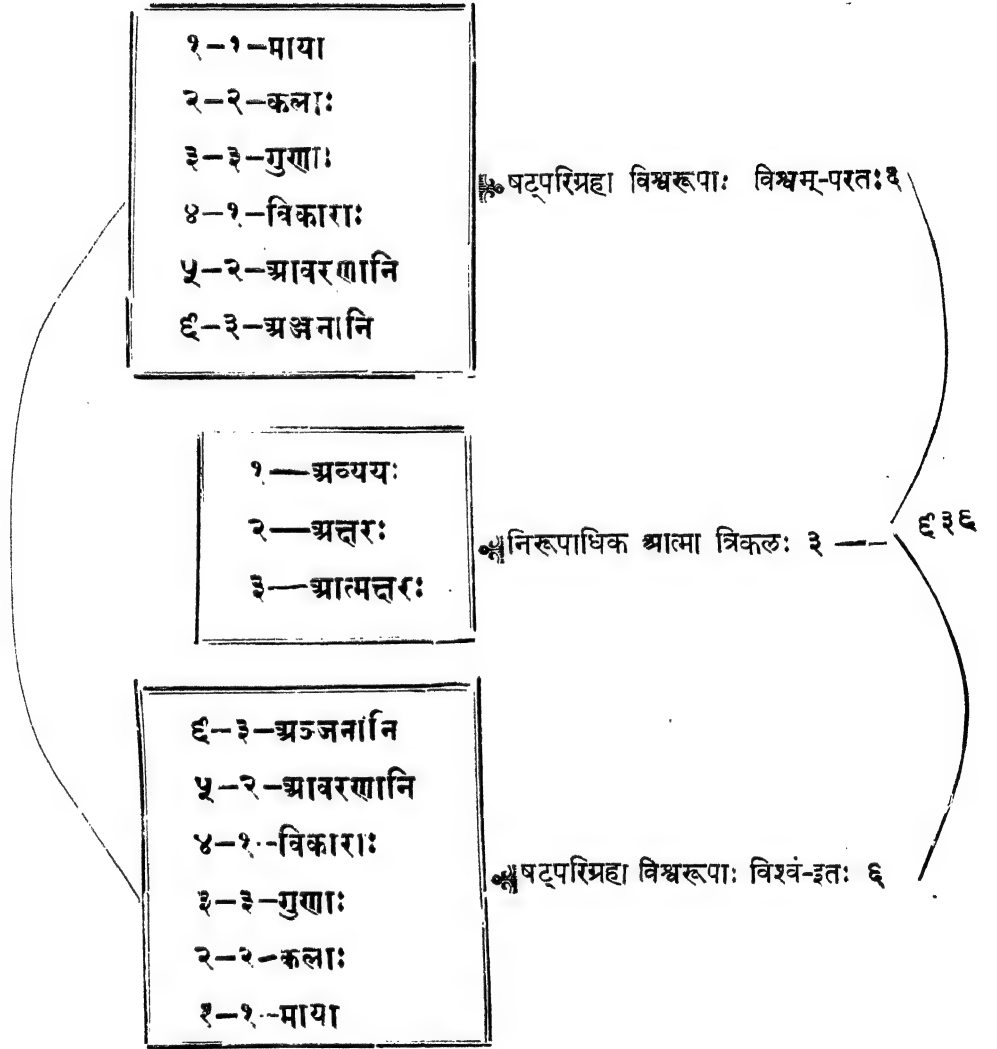 १-१-माया
२-२-कलाः
३-३-गुणाः
४-१-विकाराः
५-२-आवरणानि
६-३-अञ्जनानि
षट्परिग्रहा विश्वरूपाः विश्वम्-परतः६
१—अव्ययः
२—अक्षरः
३—आत्मक्षरः
निरूपाधिक आत्मा त्रिकलः ३ —
६३६
६-३-अञ्जनानि
५-२-आवरणानि
४-१-विकाराः
३-३-गुणाः
२-२-कलाः
१-१-माया
षट्परिग्रहा विश्वरूपाः विश्वं-इतः ६